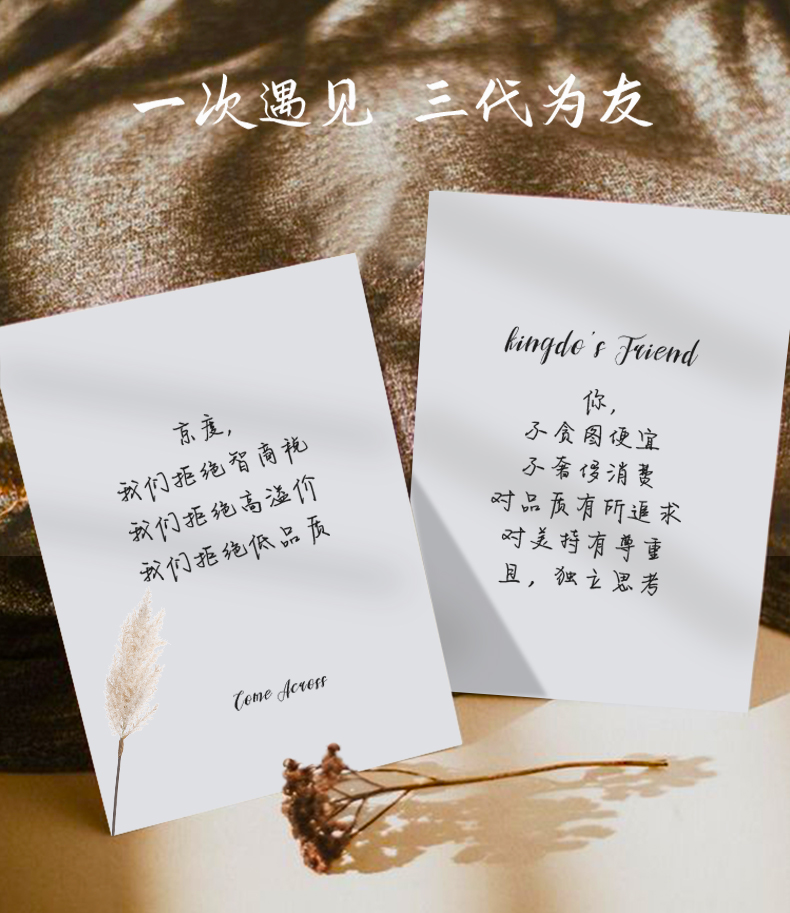 一次遇见 三代为友
京度，
我们拒绝智商税
我们拒绝高溢价
我们拒绝低品质
Come Across
kingdo's Friend
你，
不贪图便宜
不奢侈消费
对品质有所追求
对美持有尊重
且，独立思考